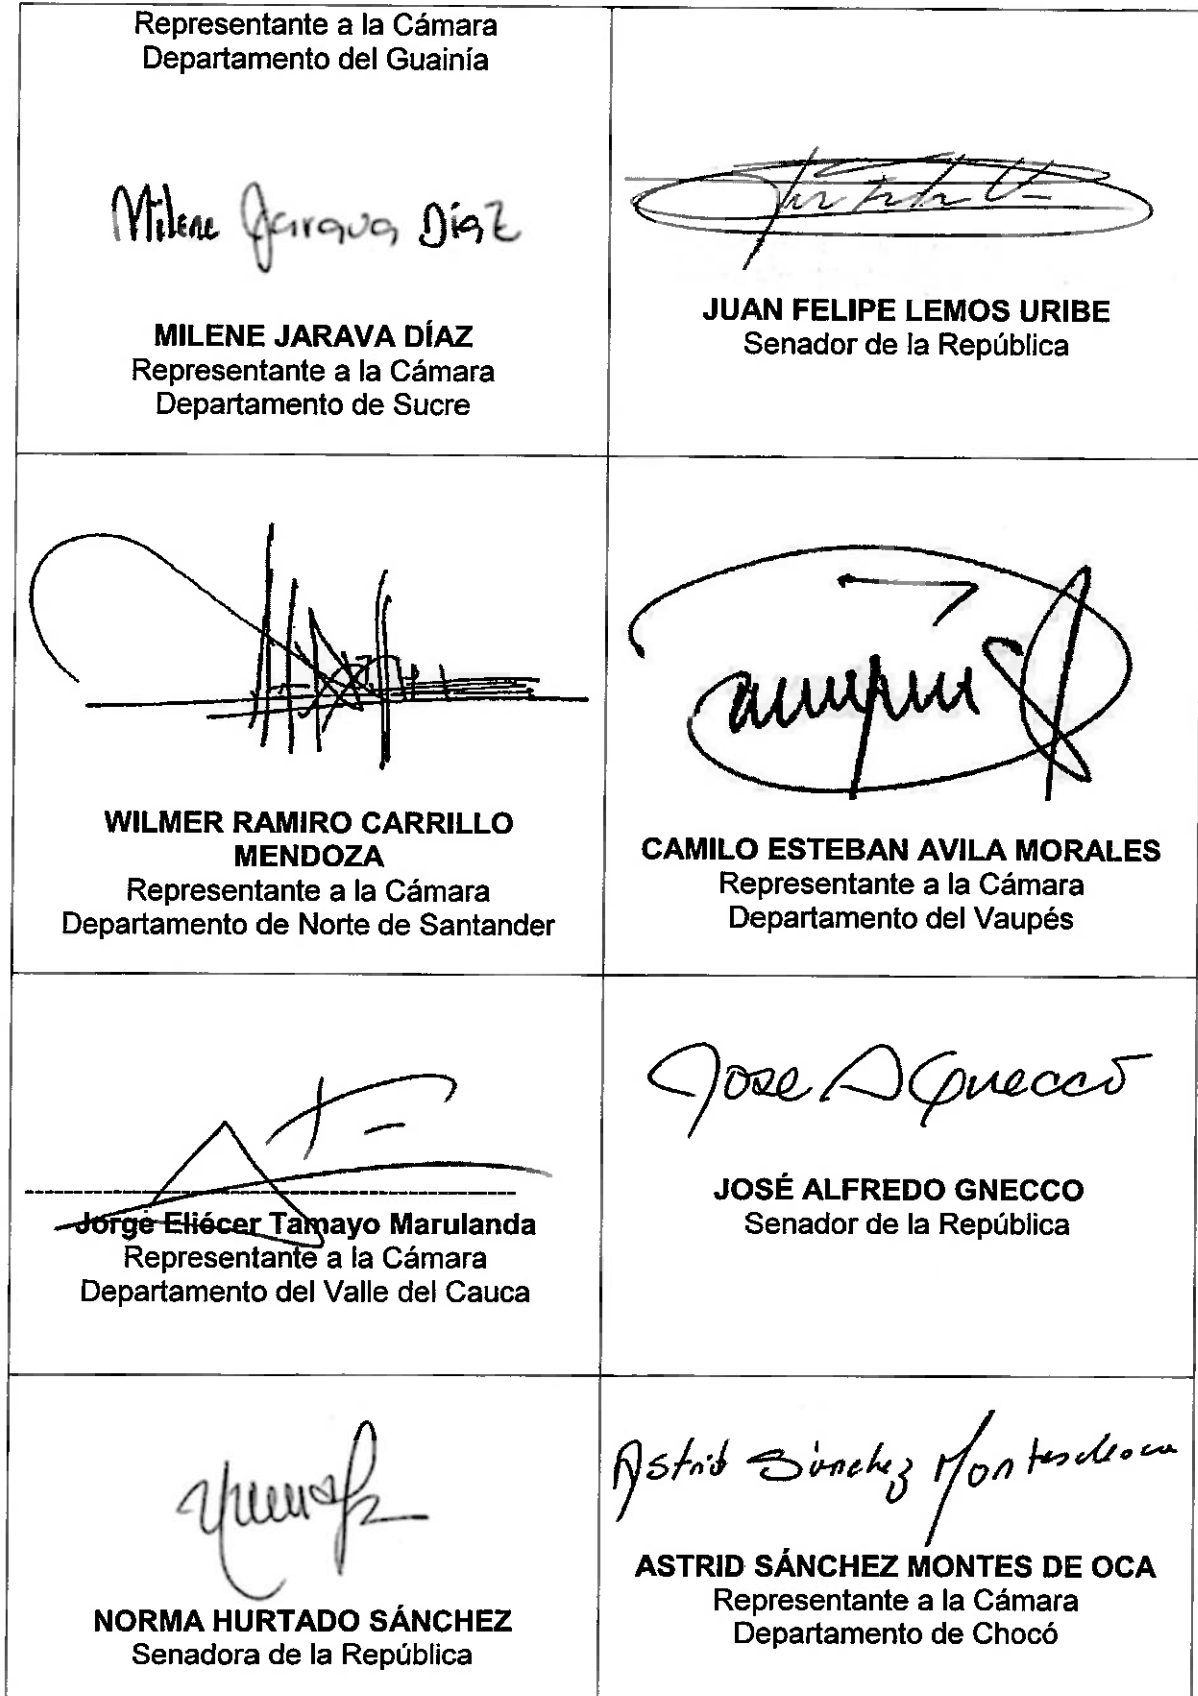 Representante a la Cámara
Departamento del Guainía
Milene Jarava Diaz
MILENE JARAVA DÍAZ
Representante a la Cámara
Departamento de Sucre
JUAN FELIPE LEMOS URIBE
Senador de la República
WILMER RAMIRO CARRILLO
MENDOZA
Representante a la Cámara
Departamento de Norte de Santander
CAMILO ESTEBAN AVILA MORALES
Representante a la Cámara
Departamento del Vaupés
Jorge Eliécer Tamayo Marulanda
Representante a la Cámara
Departamento del Valle del Cauca
Jose A Gnecco
JOSÉ ALFREDO GNECCO
Senador de la República
NORMA HURTADO SÁNCHEZ
Senadora de la República
Astrid Sánchez Montesdeoca
ASTRID SÁNCHEZ MONTES DE OCA
Representante a la Cámara
Departamento de Chocó